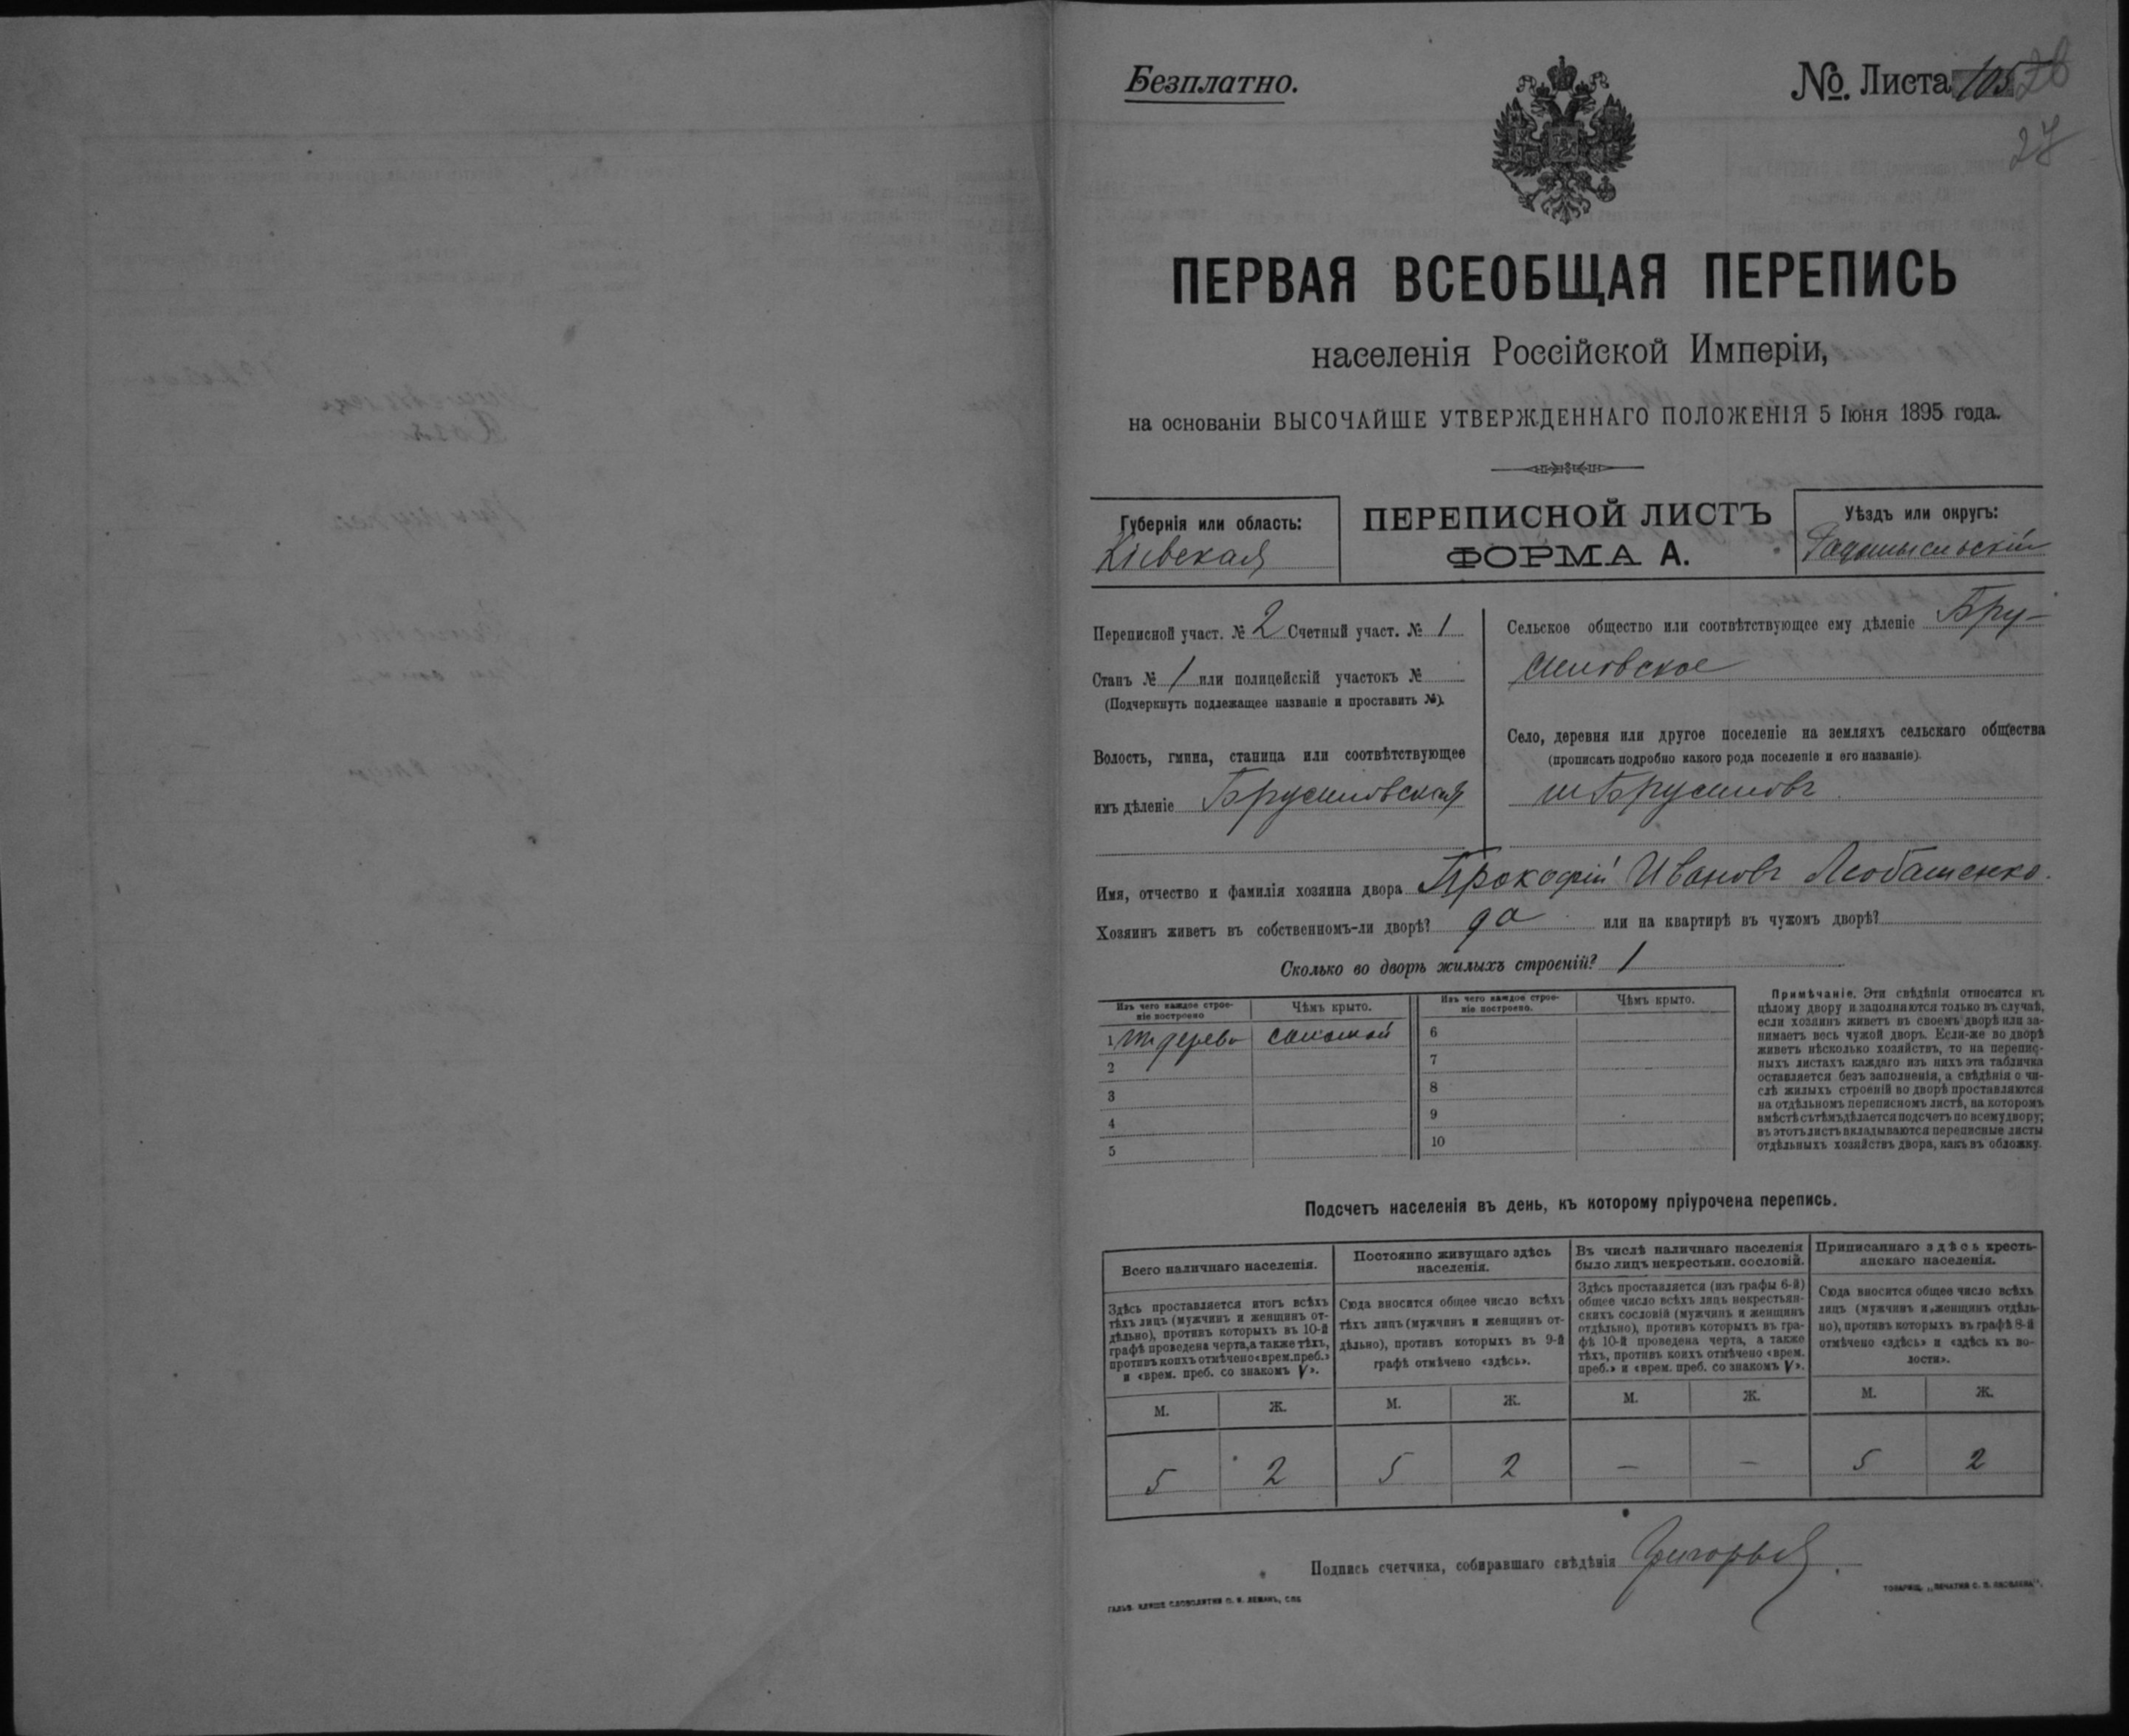 Безплатно.
№. Листа 105 26
27
ПЕРВАЯ ВСЕОБЩАЯ ПЕРЕПИСЬ
населенія Россійской Имперіи,
на основаніи ВЫСОЧАЙШЕ УТВЕРЖДЕННАГО ПОЛОЖЕНІЯ 5 Іюня 1895 года.
Губернія или область:
Кіевская
ПЕРЕПИСНОЙ ЛИСТЪ
ФОРМА А.
Уѣздъ или округъ:
Радомысльскій
Переписной участ. № 2 Счетный участ. № 1
Станъ № 1 или полицейскій участокъ №
(Подчеркнуть подлежащее названіе и проставить №).
Волость, гмина, станица или соотвѣтствующее
имъ дѣленіе Брусиловская
Сельское общество или соотвѣтствующее ему дѣленіе Бру-
силовское
Село, деревня или другое поселеніе на земляхъ сельскаго общества
(прописать подробно какого рода поселеніе и его названіе).
м Брусиловъ
Имя, отчество и фамилія хозяина двора Прокофій Ивановъ Любашенко.
Хозяинъ живетъ въ собственномъ-ли дворѣ? да или на квартирѣ въ чужомъ дворѣ?
Сколько во дворѣ жилыхъ строеній? 1
Изъ чего каждое строе-
ніе построено
Чѣмъ крыто.
Изъ чего каждое строе-
ніе построено.
Чѣмъ крыто.
1 изъ дерева соломой 6
2 7
3 8
4 9
5 10
Примѣчаніе. Эти свѣдѣнія относятся къ
цѣлому двору и заполняются только въ случаѣ,
если хозяинъ живетъ въ своемъ дворѣ или за-
нимаетъ весь чужой дворъ. Если-же во дворѣ
живетъ нѣсколько хозяйствъ, то на перепис-
ныхъ листахъ каждаго изъ нихъ эта табличка
оставляется безъ заполненія, а свѣдѣнія о чи-
слѣ жилыхъ строеній во дворѣ проставляются
на отдѣльномъ переписномъ листѣ, на которомъ
вмѣстѣ съ тѣмъ дѣлается подсчетъ по всему двору;
въ этотъ листъ вкладываются переписные листы
отдѣльныхъ хозяйствъ двора, какъ въ обложку.
Подсчетъ населенія въ день, къ которому пріурочена перепись.
Всего наличнаго населенія.
Здѣсь проставляется итогъ всѣхъ
тѣхъ лицъ (мужчинъ и женщинъ от-
дѣльно), противъ которыхъ въ 10-й
графѣ проведена черта, а также тѣхъ,
противъ коихъ отмѣчено «врем. преб.»
и «врем. преб. со знакомъ V».
Постоянно живущаго здѣсь
населенія.
Сюда вносится общее число всѣхъ
тѣхъ лицъ (мужчинъ и женщинъ от-
дѣльно), противъ которыхъ въ 9-й
графѣ отмѣчено «здѣсь».
Въ числѣ наличнаго населенія
было лицъ некрестьян. сословій.
Здѣсь проставляется (изъ графы 6-й)
общее число всѣхъ лицъ некрестьян-
скихъ сословій (мужчинъ и женщинъ
отдѣльно), противъ которыхъ въ гра-
фѣ 10-й проведена черта, а также
тѣхъ, противъ коихъ отмѣчено «врем.
преб.» и «врем. преб. со знакомъ V».
Приписаннаго здѣсь кресть-
янскаго населенія.
Сюда вносится общее число всѣхъ
лицъ (мужчинъ и женщинъ отдѣль-
но), противъ которыхъ въ графѣ 8-й
отмѣчено «здѣсь» и «здѣсь къ во-
лости».
М. Ж. М. Ж. М. Ж. М. Ж.
5 2 5 2 — — 5 2
Подпись счетчика, собиравшаго свѣдѣнія
ГАЛЬВ. КЛИШЕ СЛОВОЛИТНИ О. И. ЛЕМАНЪ, СПБ
ТОВАРИЩ. „ПЕЧАТНЯ С. П. ЯКОВЛЕВА".